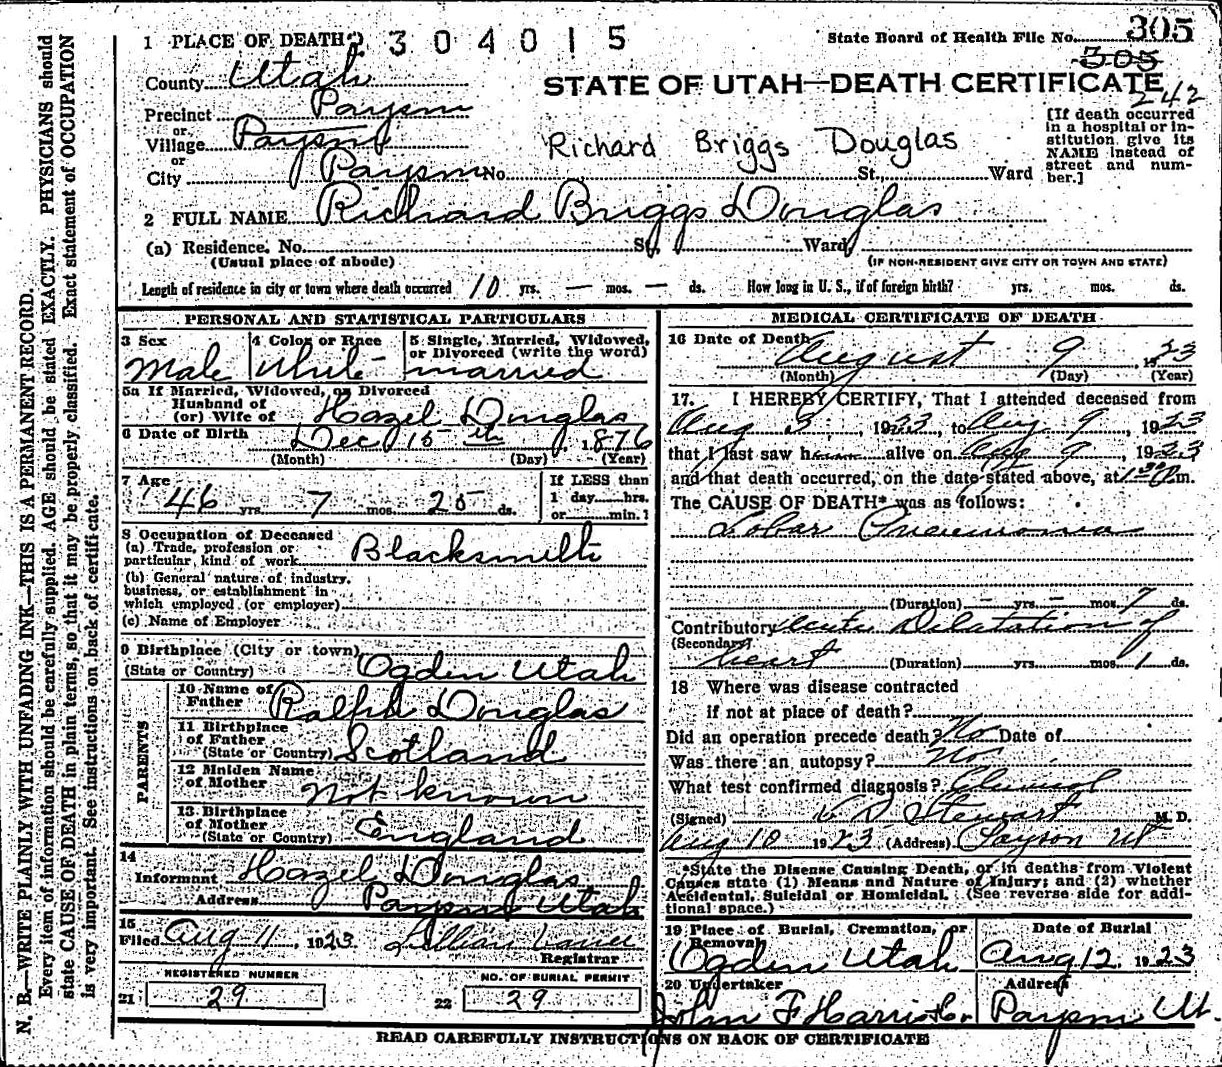 1 PLACE OF DEATH 2 3 0 4 0 1 5
State Board of Health File No. 305
305
County Utah
STATE OF UTAH—DEATH CERTIFICATE
242
Precinct Payson
or
Village Payson
or
City Payson No. St. Ward
Richard Briggs Douglas
[If death occurred
in a hospital or in-
stitution give its
NAME instead of
street and num-
ber.]
2 FULL NAME Richard Briggs Douglas
(a) Residence. No. St. Ward
(Usual place of abode)
(IF NON-RESIDENT GIVE CITY OR TOWN AND STATE)
Length of residence in city or town where death occurred 10 yrs. — mos. — ds. How long in U. S., if of foreign birth? yrs. mos. ds.
PERSONAL AND STATISTICAL PARTICULARS
3 Sex
Male
4 Color or Race
White
5 Single, Married, Widowed,
or Divorced (write the word)
married
5a If Married, Widowed, or Divorced
Husband of
(or) Wife of Hazel Douglas
6 Date of Birth Dec 15th 1876
(Month) (Day) (Year)
7 Age
46 yrs. 7 mos. 25 ds.
If LESS than
1 day hrs.
or min.?
8 Occupation of Deceased
(a) Trade, profession or
particular, kind of work Blacksmith
(b) General nature of industry,
business, or establishment in
which employed (or employer)
(c) Name of Employer
9 Birthplace (City or town)
(State or Country) Ogden Utah
PARENTS
10 Name of
Father Ralph Douglas
11 Birthplace
of Father
(State or Country) Scotland
12 Maiden Name
of Mother Not known
13 Birthplace
of Mother
(State or Country) England
14
Informant Hazel Douglas
Address Payson Utah
15
Filed Aug 11, 1923 Lillian
Registrar
REGISTERED NUMBER
21 29
NO. OF BURIAL PERMIT
22 29
MEDICAL CERTIFICATE OF DEATH
16 Date of Death August 9, 1923
(Month) (Day) (Year)
17. I HEREBY CERTIFY, That I attended deceased from
Aug 3, 1923, to Aug 9, 1923
that I last saw him alive on Aug 9, 1923
and that death occurred, on the date stated above, at 1:30 P.m.
The CAUSE OF DEATH* was as follows:
Lobar Pneumonia
(Duration) — yrs. — mos. 7 ds.
Contributory Acute Dilatation of
(Secondary)
heart (Duration) yrs. mos. 1 ds.
18 Where was disease contracted
if not at place of death?
Did an operation precede death? No Date of
Was there an autopsy? No
What test confirmed diagnosis? Clinical
(Signed) Stewart M. D.
Aug 10 1923 (Address) Payson Ut
*State the Disease Causing Death, or in deaths from Violent
Causes state (1) Means and Nature of Injury; and (2) whether
Accidental, Suicidal or Homicidal. (See reverse side for addi-
tional space.)
19 Place of Burial, Cremation, or
Removal
Ogden Utah
Date of Burial
Aug 12 1923
20 Undertaker
John F Harris
Address
Payson Ut.
READ CAREFULLY INSTRUCTIONS ON BACK OF CERTIFICATE
N. B.—WRITE PLAINLY WITH UNFADING INK—THIS IS A PERMANENT RECORD.
Every item of information should be carefully supplied. AGE should be stated EXACTLY. PHYSICIANS should
state CAUSE OF DEATH in plain terms, so that it may be properly classified. Exact statement of OCCUPATION
is very important. See instructions on back of certificate.